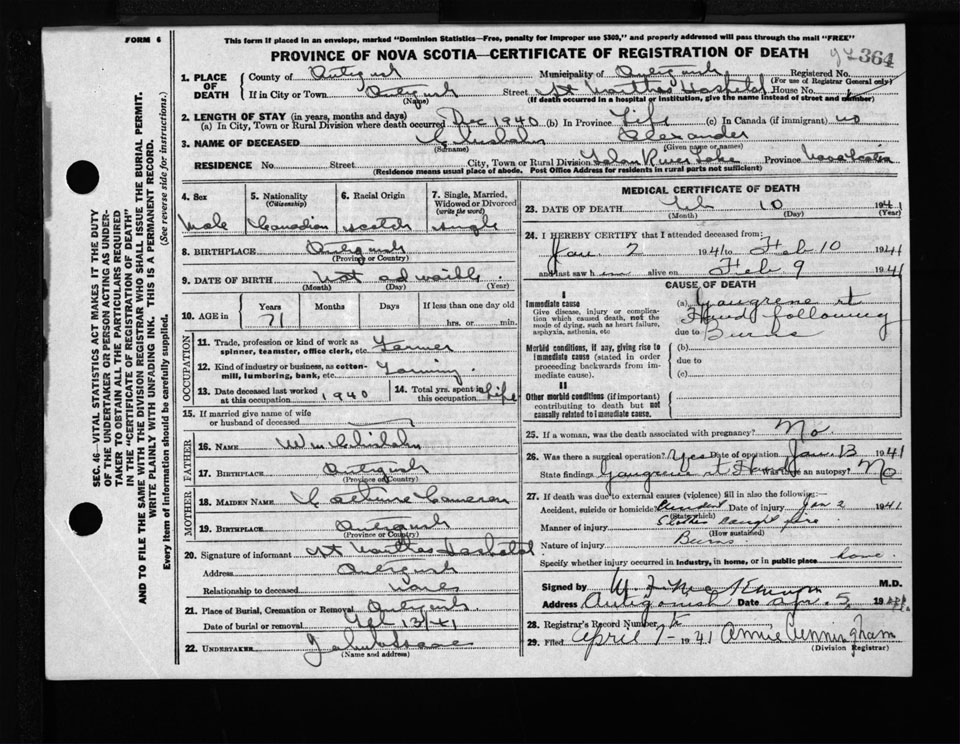 FORM 6
This form if placed in an envelope, marked "Dominion Statistics—Free, penalty for improper use $300," and properly addressed will pass through the mail "FREE"
PROVINCE OF NOVA SCOTIA—CERTIFICATE OF REGISTRATION OF DEATH
364
1. PLACE OF DEATH County of Antigonish Municipality of Antigonish Registered No.
(For use of Registrar General only)
If in City or Town Antigonish Street St Marthas Hospital House No.
(Name) (If death occurred in a hospital or institution, give the name instead of street and number)
2. LENGTH OF STAY (in years, months and days)
(a) In City, Town or Rural Division where death occurred Dec 1940 (b) In Province Life (c) In Canada (if immigrant) no
3. NAME OF DECEASED Chisholm Alexander
(Surname) (Given name or names)
RESIDENCE No. Street City, Town or Rural Division River Lake Province Nova Scotia
(Residence means usual place of abode. Post Office Address for residents in rural parts not sufficient)
4. Sex 5. Nationality (Citizenship) 6. Racial Origin 7. Single, Married, Widowed or Divorced (write the word)
Male Canadian Scotch Single
8. BIRTHPLACE Antigonish
(Province or Country)
9. DATE OF BIRTH Not
(Month) (Day) (Year)
10. AGE in Years Months Days If less than one day old
71 hrs. or min.
OCCUPATION
11. Trade, profession or kind of work as spinner, teamster, office clerk, etc. Farmer
12. Kind of industry or business, as cotton-mill, lumbering, bank, etc. Farming
13. Date deceased last worked at this occupation 1940 14. Total yrs. spent in this occupation Life
15. If married give name of wife or husband of deceased
FATHER
16. NAME Wm Chisholm
17. BIRTHPLACE Antigonish
(Province or Country)
MOTHER
18. MAIDEN NAME Cameron
19. BIRTHPLACE Antigonish
(Province or Country)
20. Signature of informant St Marthas Hospital
Address Antigonish
Relationship to deceased None
21. Place of Burial, Cremation or Removal Antigonish
Date of burial or removal Feb 13/41
22. UNDERTAKER
(Name and address)
MEDICAL CERTIFICATE OF DEATH
23. DATE OF DEATH Feb 10 1941
(Month) (Day) (Year)
24. I HEREBY CERTIFY that I attended deceased from:
Jan. 2 1941 to Feb 10 1941
and last saw him alive on Feb 9 1941
CAUSE OF DEATH
I
Immediate cause
Give disease, injury or complication which caused death, not the mode of dying, such as heart failure, asphyxia, asthenia, etc
(a) Gangrene rt
Hand following
due to Burns
Morbid conditions, if any, giving rise to immediate cause (stated in order proceeding backwards from immediate cause).
(b)
due to
(c)
II
Other morbid conditions (if important) contributing to death but not causally related to immediate cause.
25. If a woman, was the death associated with pregnancy? No
26. Was there a surgical operation? Yes Date of operation Jan. 13 1941
State findings Gangrene rt Hand Was there an autopsy? No
27. If death was due to external causes (violence) fill in also the following:—
Accident, suicide or homicide? Accident Date of injury Jan 2 1941
(State which)
Manner of injury Clothes caught fire
(How sustained)
Nature of injury Burns
Specify whether injury occurred in industry, in home, or in public place home
Signed by M.D.
Address Antigonish Date Apr. 5 1941
28. Registrar's Record Number
29. Filed April 7th 1941 Annie Cunningham
(Division Registrar)
SEC. 46—VITAL STATISTICS ACT MAKES IT THE DUTY
OF THE UNDERTAKER OR PERSON ACTING AS UNDER-
TAKER TO OBTAIN ALL THE PARTICULARS REQUIRED
IN THE "CERTIFICATE OF REGISTRATION OF DEATH"
AND TO FILE THE SAME WITH THE DIVISION REGISTRAR WHO SHALL ISSUE THE BURIAL PERMIT.
WRITE PLAINLY WITH UNFADING INK. THIS IS A PERMANENT RECORD.
Every item of information should be carefully supplied. (See reverse side for instructions.)